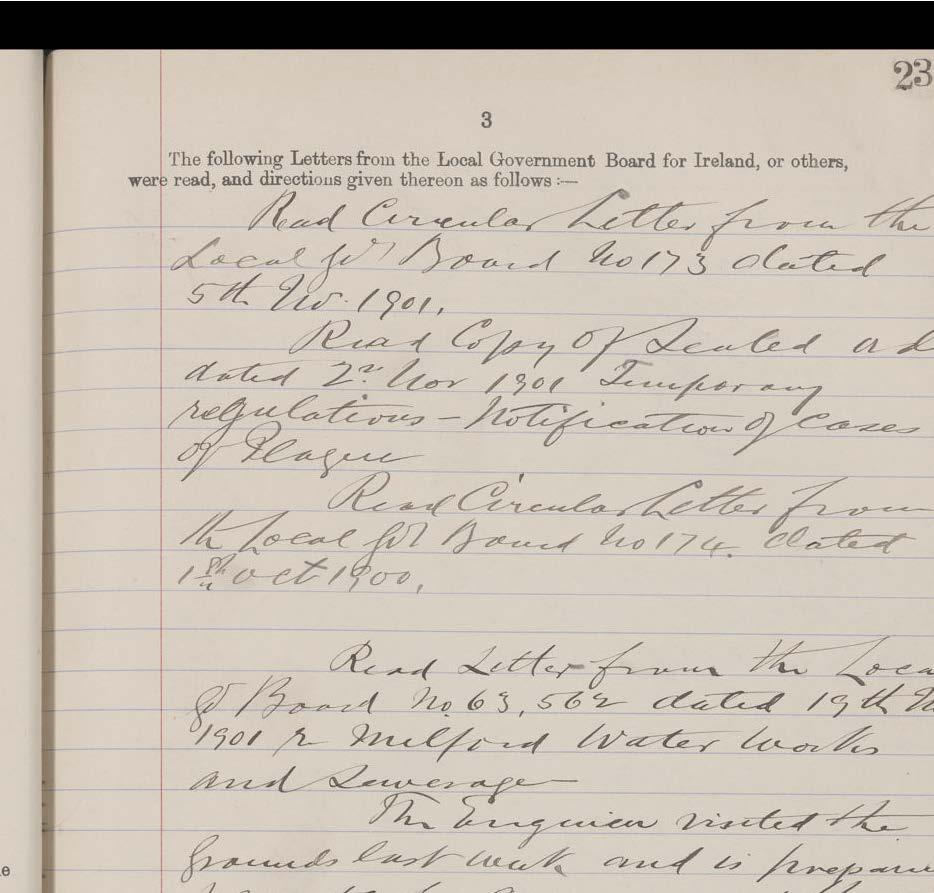 23
3
The following Letters from the Local Government Board for Ireland, or others,
were read, and directions given thereon as follows :—
Read Circular Letter from the
Local Gvt Board No 173 dated
5th Nov. 1901.
Read Copy of Sealed
dated 2nd Nov 1901 Temporary
regulations – Notification of Cases
of Plague
Read Circular Letter from
the Local Gvt Board No 174. dated
Oct 1900.
Read Letter from the Loca
Gvt Board No. 63,562 dated 19th
1901 re Milford Water Works
and Sewerage
The Engineer visited the
grounds last week and is prepare